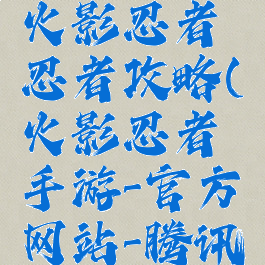 火影忍者
忍者攻略(
火影忍者
手游-官方
网站-腾讯